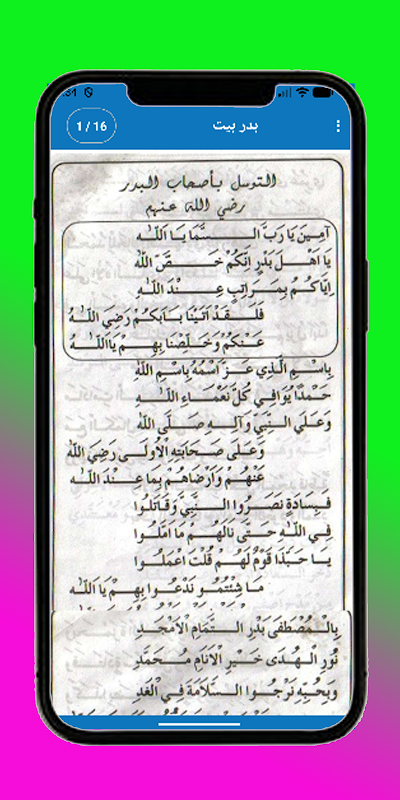 :34
1 / 16
بدر بيت
التوسل بأصحاب البدر
رضي الله عنهم
آمِينَ يَا رَبَّ السَّمَا يَا اَللّٰه
يَا اَهْلَ بَدْرٍ اِنَّكُمْ خَصَّ اللّٰه
اِيَّاكُمُ بِمَرَاتِبٍ عِنْدَ اللّٰهِ
فَلَقَدْ اَتَيْنَا بَابَكُمْ رَضِيَ اللّٰهُ
عَنْكُمْ وَخَلِّصْنَا بِهِمْ يَااَللّٰه
بِاسْمِ الَّذِي عَزَّ اسْمُهُ بِاسْمِ اللّٰهِ
حَمْدًا يُوَافِي كُلَّ نَعْمَاءِ اللّٰهِ
وَعَلَى النَّبِيِّ وَآلِهِ صَلَّى اللّٰه
وَعَلَى صَحَابَتِهِ الْاُولَى رَضِيَ اللّٰه
عَنْهُمْ وَاَرْضَاهُمْ بِمَا عِنْدَ اللّٰه
فَبِسَادَةٍ نَصَرُوا النَّبِيَّ وَقَاتَلُوا
فِي اللّٰهِ حَتَّى نَالَهُمْ مَا اَمَلُوا
يَا حَبَّذَا قَوْمٌ لَهُمْ قُلْتَ اعْمَلُوا
مَا شِئْتُمُو نَدْعُوا بِهِمْ يَا اَللّٰه
بِالْمُصْطَفَى بَدْرِ التَّمَامِ الْاَمْجَدِ
نُورِ الْهُدَى خَيْرِ الْاَنَامِ مُحَمَّدٍ
وَبِحُبِّهِ نَرْجُوا السَّلَامَةَ فِي الْغَدِ